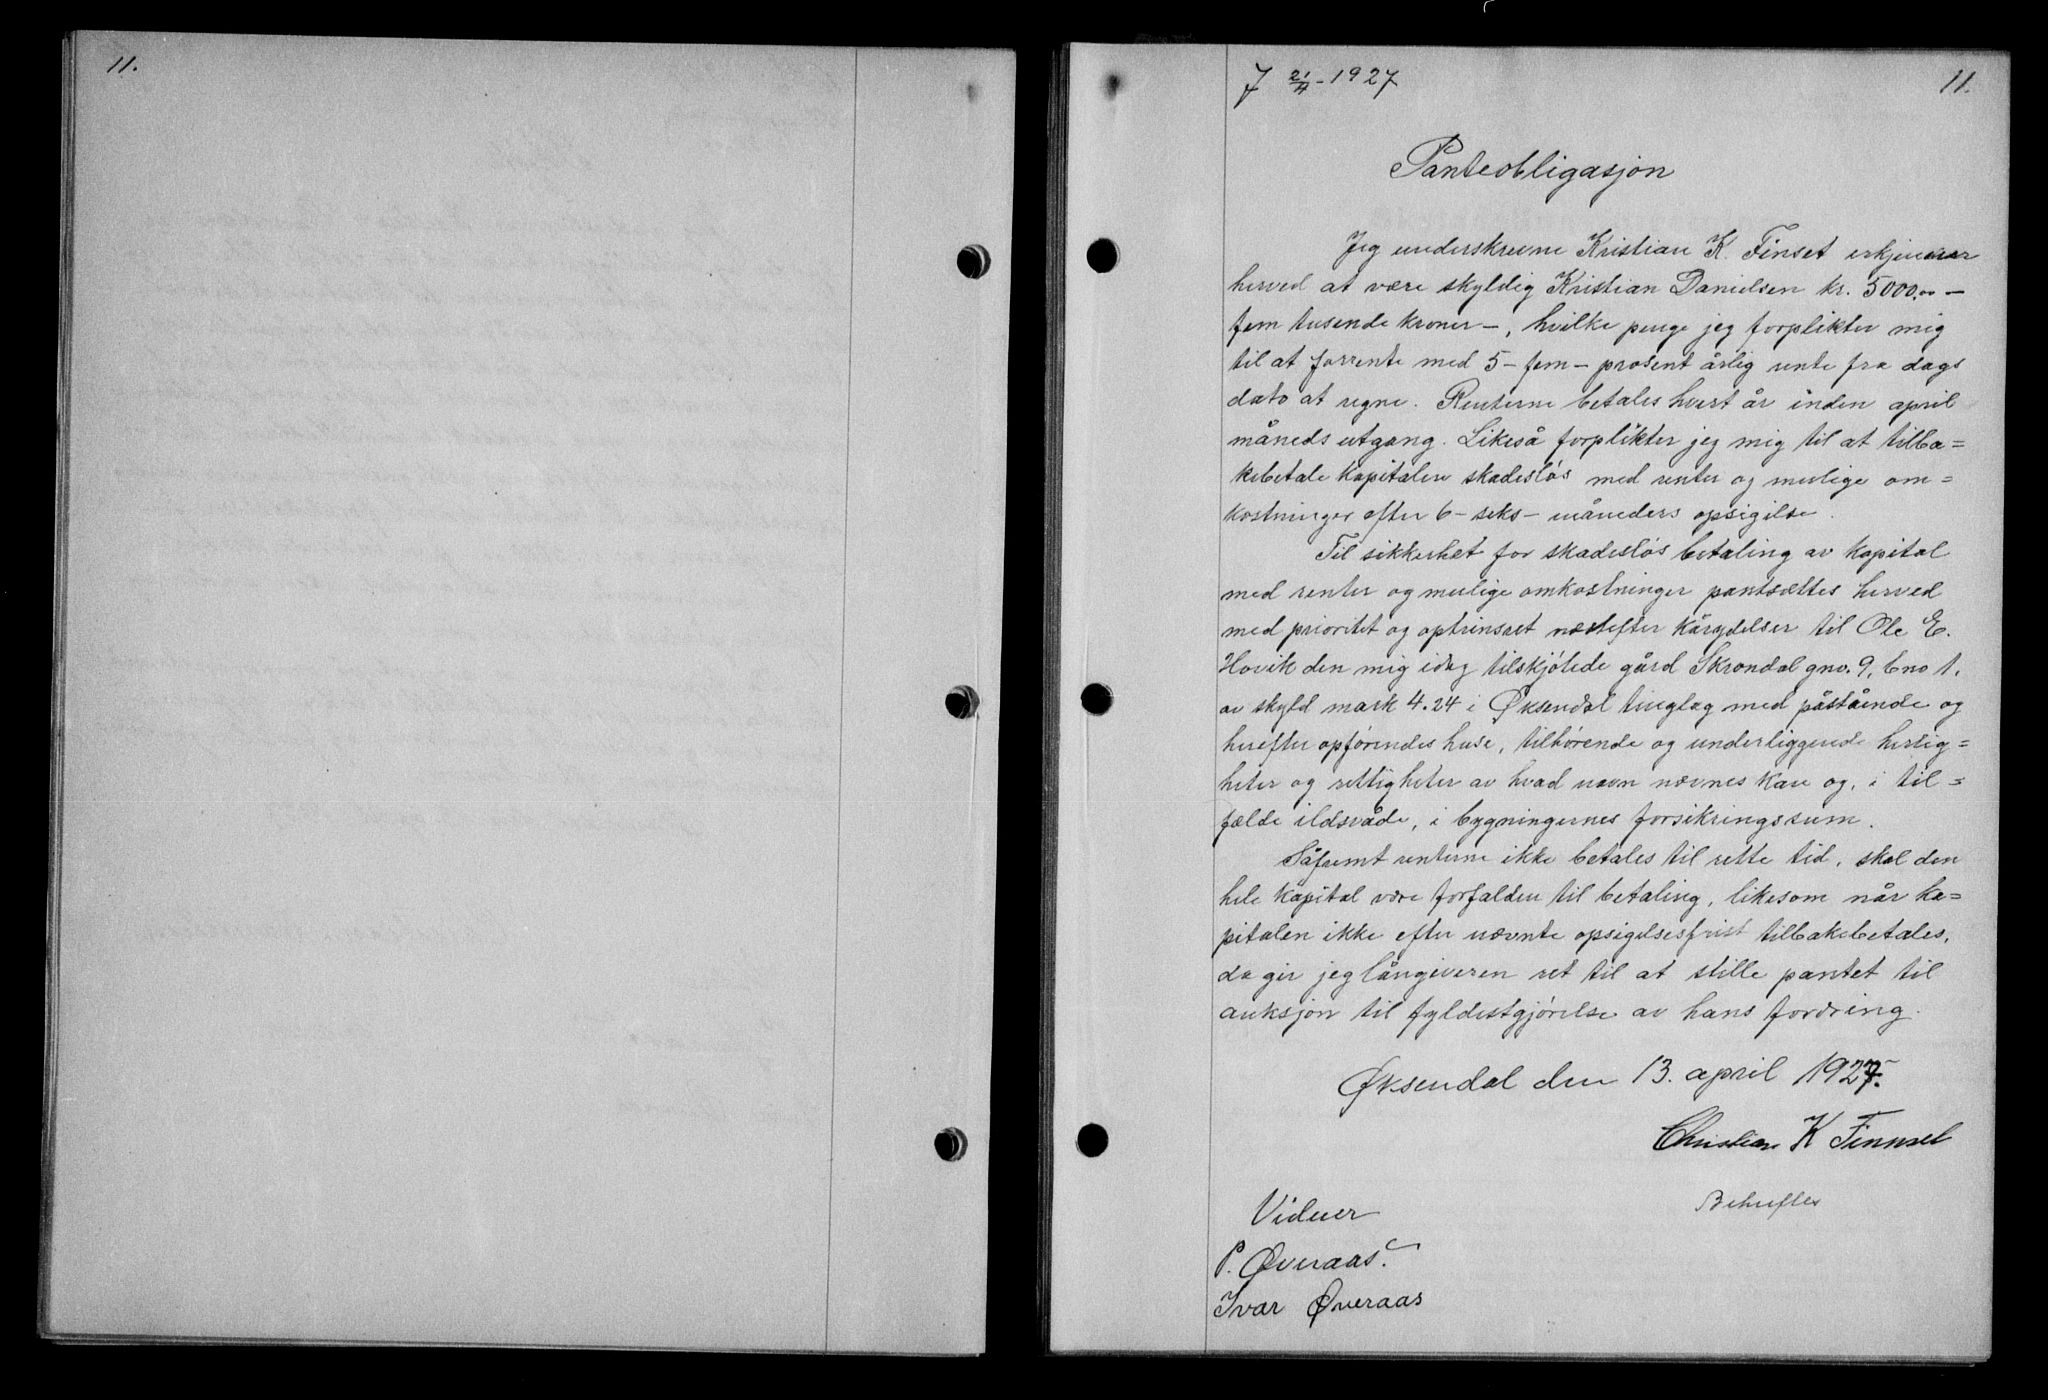 11.
7 21/4-1927
11.
Panteobligasjon
Jeg underskrevne Kristian K. Finset erkjenner
herved at være skyldig Kristian Danielsen kr. 5000.00 -
fem tusende kroner -, hvilke penge jeg forplikter mig
til at forrente med 5 - fem - prosent årlig rente fra dags
dato at regne. Renterne betales hvert år inden april
måneds utgang. Likeså forplikter jeg mig til at tilba=
kebetale kapitalen skadesløs med renter og mulige om=
kostninger efter 6 - seks - måneders opsigelse.
Til sikkerhet for skadesløs betaling av kapital
med renter og mulige omkostninger pantsættes herved
med prioritet og optrinsret næstefter kårydelser til Ole E.
Hovik den mig idag tilskjøtede gård Skrondal gno. 9, bno 1.
av skyld mark 4.24 i Øksendal tinglag med påstående og
herefter opførendes huse, tilhørende og underliggende herlig=
heter og rettigheter av hvad navn nævnes kan og, i til=
fælde ildsvåde, i bygningernes forsikringssum.
Såfremt renterne ikke betales til rette tid, skal den
hele kapital være forfalden til betaling, likesom når ka=
pitalen ikke efter nævnte opsigelsesfrist tilbakebetales,
da gir jeg långiveren ret til at stille pantet til
auksjon til fyldestgjørelse av hans fordring.
Øksendal den 13. april 1927.
Christian K Finnset
Bekreftes
Vidner
P. Øveraas.
Ivar Øveraas